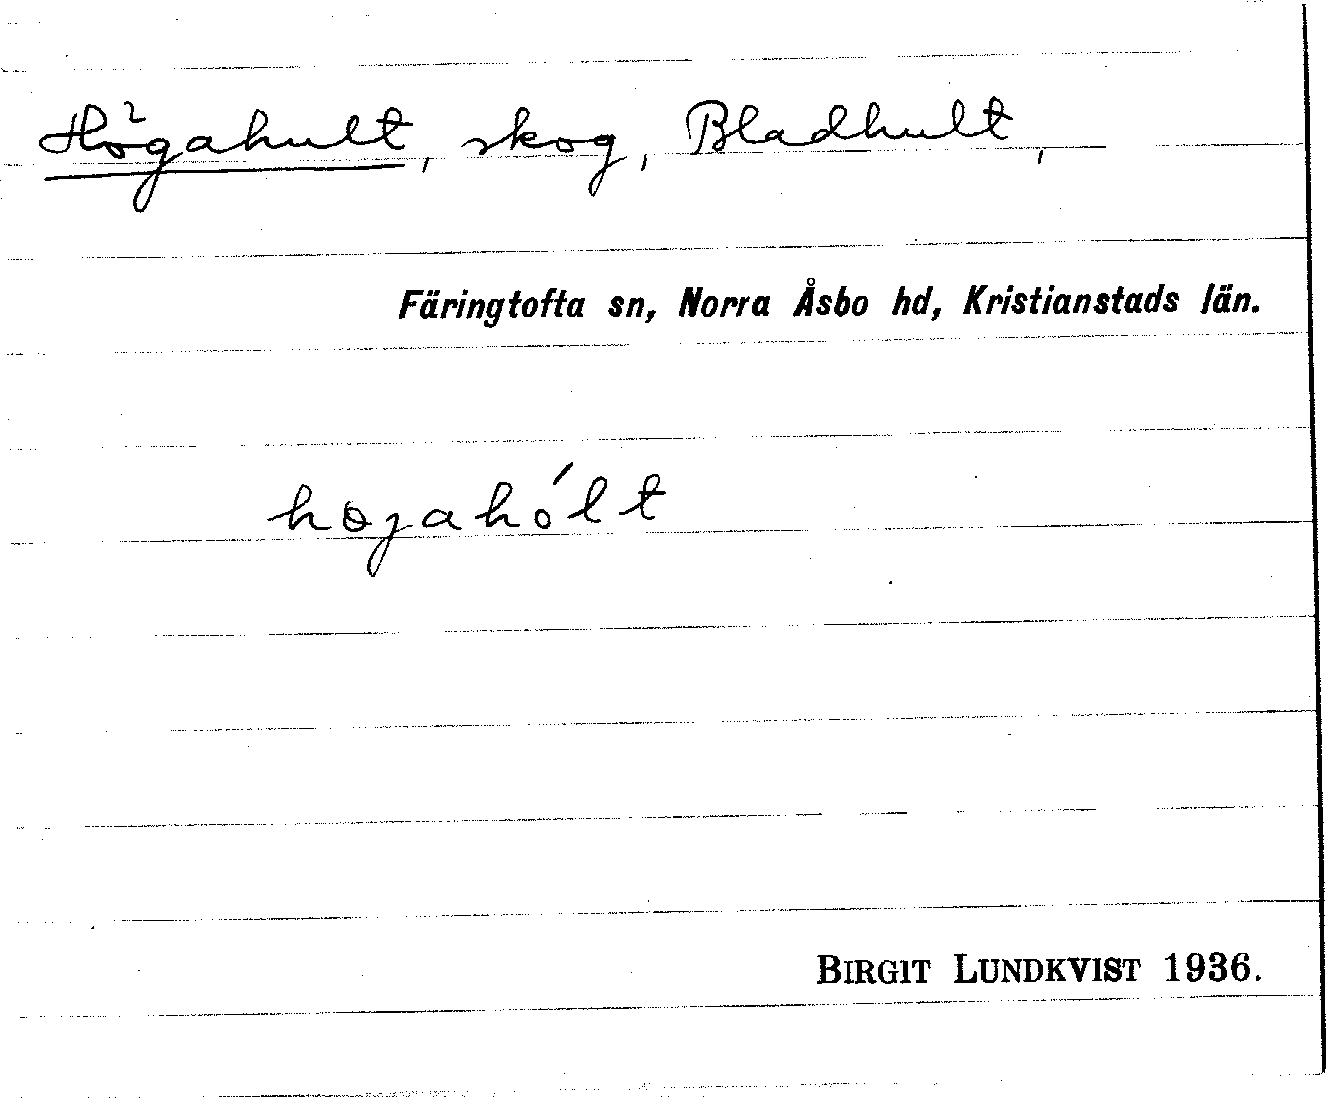 Högahult, skog, Bladhult,
Färingtofta sn, Norra Åsbo hd, Kristianstads län.
hɵgahólt
BIRGIT LUNDKVIST 1936.